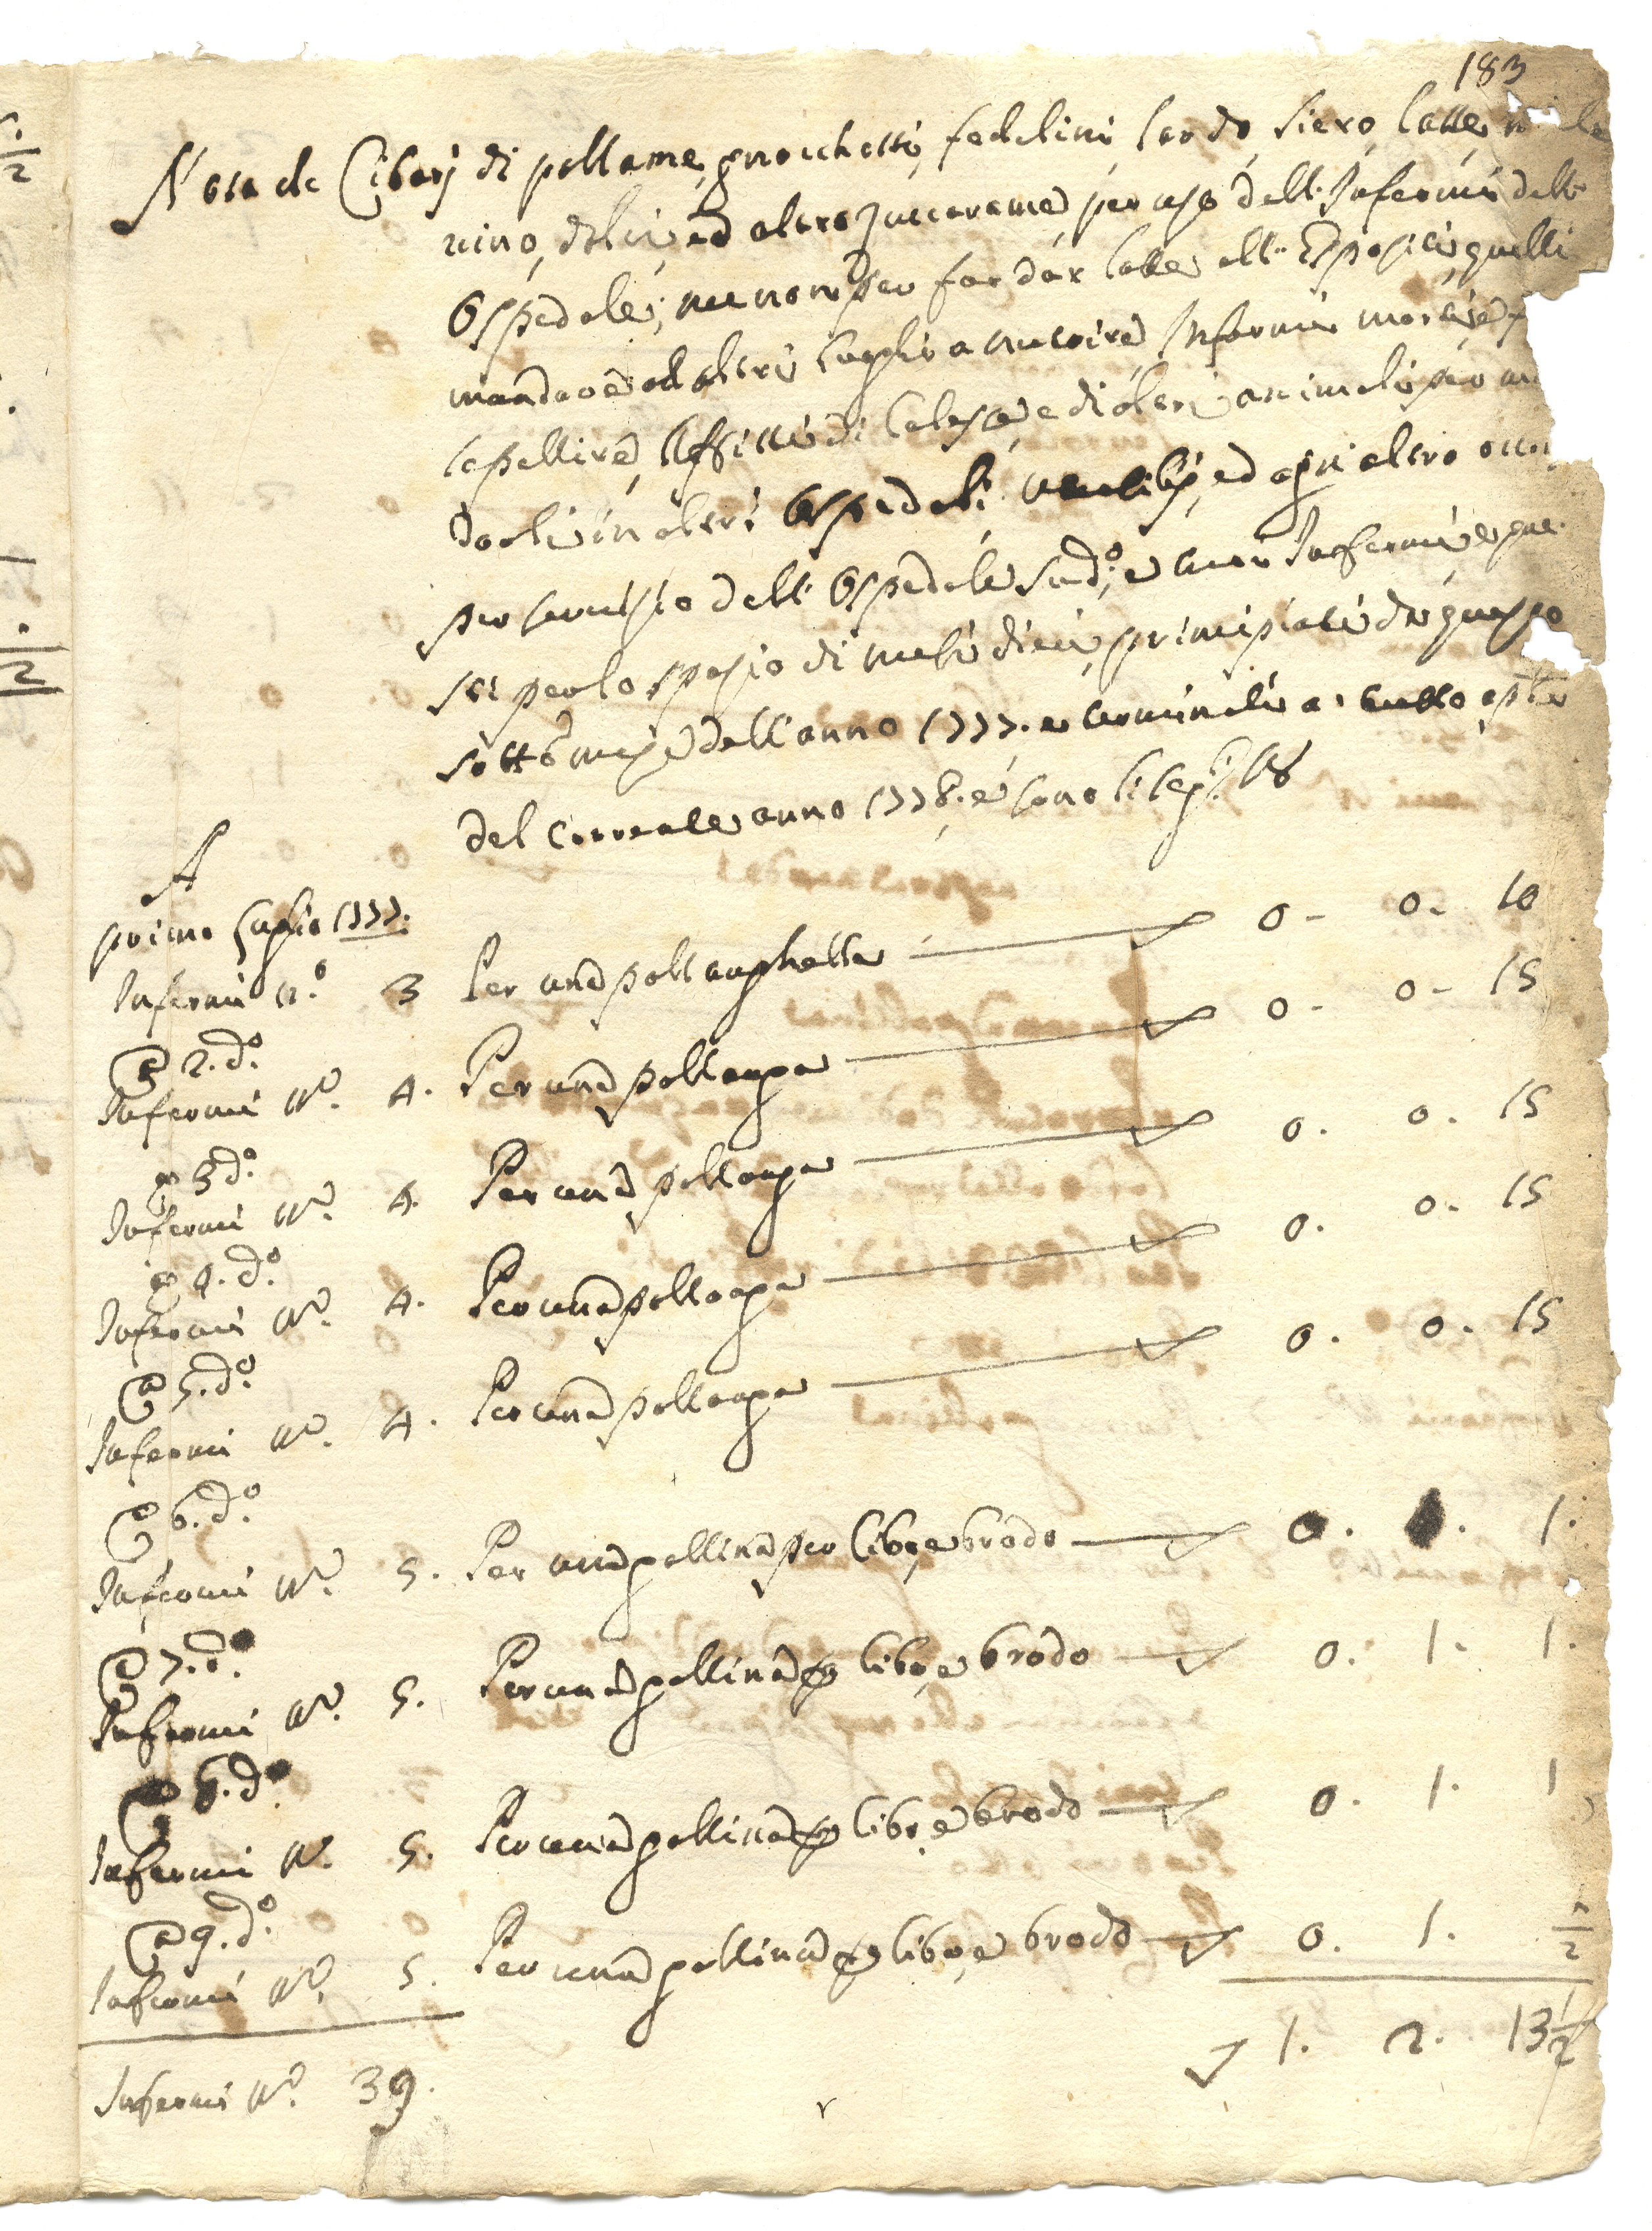 183
Nota de Cibarj di pollame, gnocchetti, fedelini, lardo, siero, latte,
vino, dolci, ed altro zuccarame per uso dell'Infermi dell'
Ospedale; nec non per far dar latte all'Espositi, quelli
mandare ad altri luoghi a nutrire, Infermi morti,
sepellire, Affitti di Calesse, e di altri animali per
darli in altri Ospedali, utensilij, ed ogni altro
per servizio dell'Ospedale sud:º, e suoi Infermi,
sti per lo spazio di mesi dieci, principiati da questo
sott:º mese dell'anno 1777. e terminati a tutto aple
del corrente anno 1778. e sono li seg:ti V8
A
primo Luglio 1777.
Infermi n.º 3 Per una pollanghella 0- 0- 10
@ 2. d:º
Infermi Nº. 4. Per una pollanga 0- 0- 15
@ 3 d:º
Infermi Nº. 4. Per una pollanga 0. 0. 15
@ 4. d:º
Infermi Nº. 4. Per una pollanga 0. 0- 15
@ 5. d:º
Infermi Nº. 4. Per una pollanga 0. 0. 15
@ 6. d:º
Infermi Nº. 5. Per una gallina per cibo, e brodo 0. 1. 1.
@ 7. d:º
Infermi Nº. 5. Per una gallina p cibo, e brodo 0. 1. 1.
@ 8. d:º
Infermi N. 5. Per una gallina p cibo, e brodo 0. 1. 1
@ 9. d:º
Infermi Nº. 5. Per una gallina p cibo, e brodo 0. 1. ½
Infermi Nº. 39. 1. 2. 13½